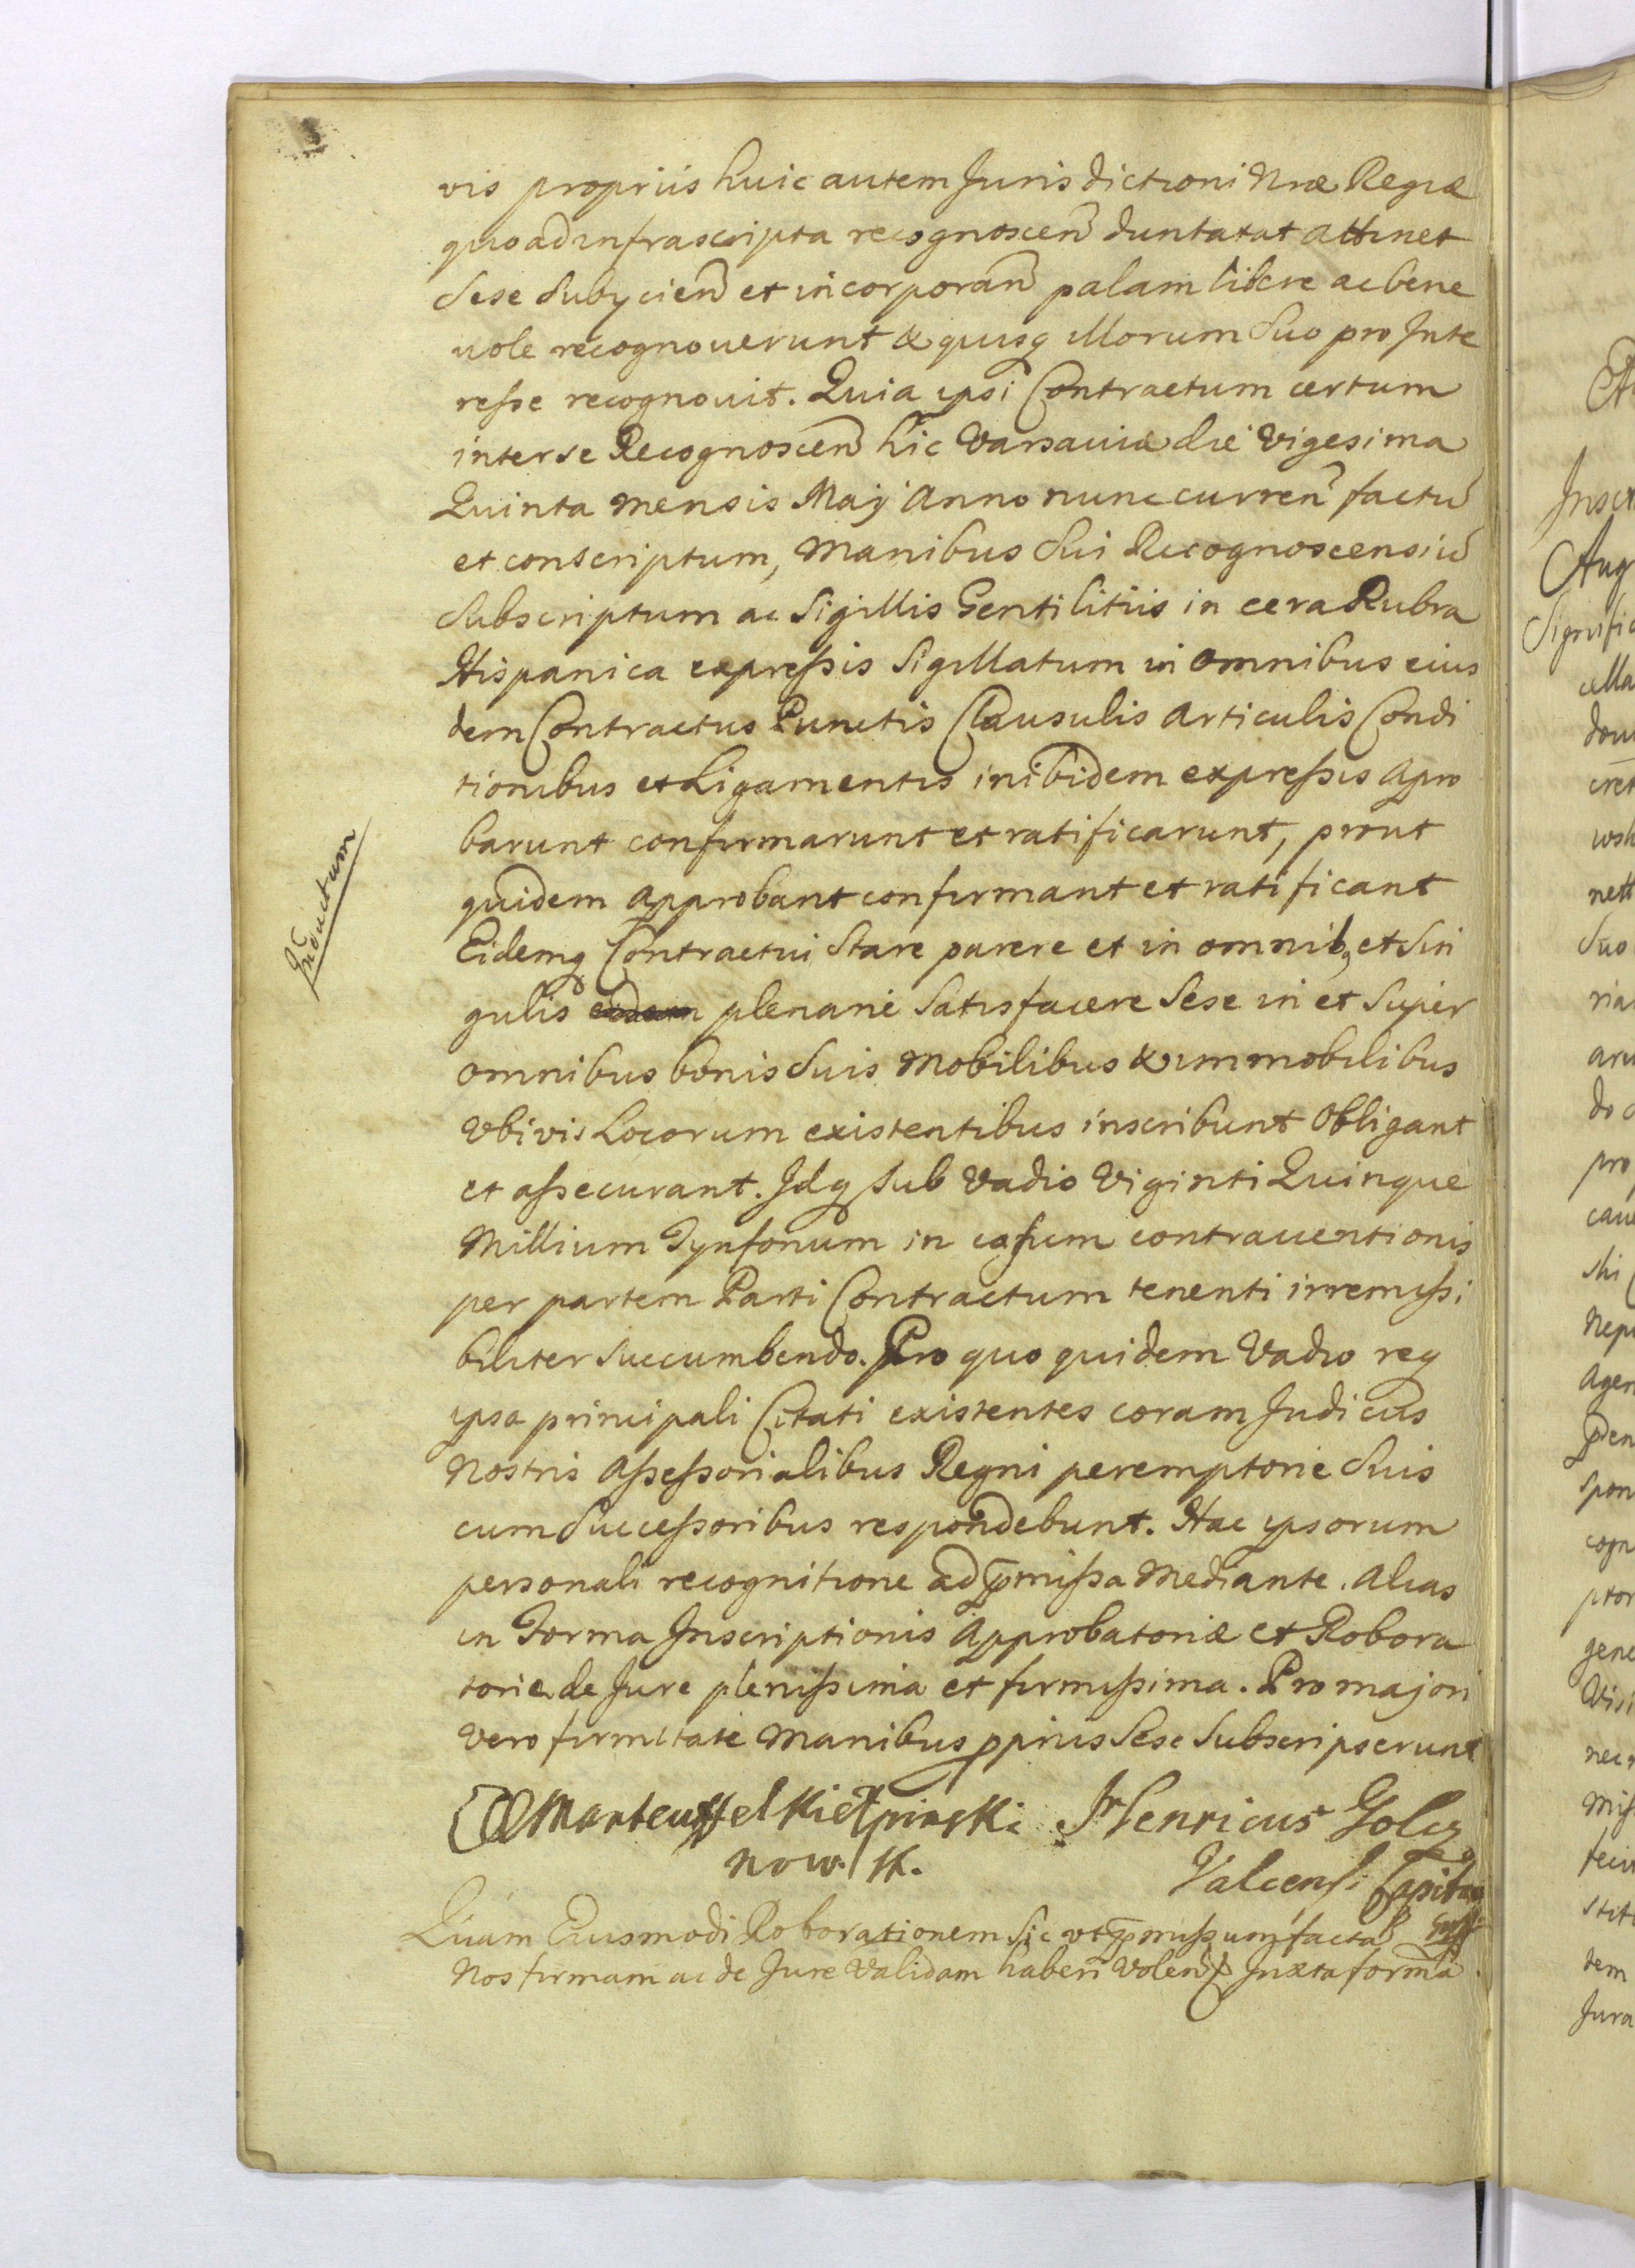 vis propriis huic autem Jurisdictioni Nræ Regiæ
quo ad infrascripta recognoscen̄ duntaxat attinet
sese subÿcien̄ et incorporan̄ palam libere ac bene
uole recognouerunt & quisq illorum suo pro Inte
resse recognouit. Quia ipsi Contractum certum
inter se Recognoscen̄ hic Varsauiæ die Vigesima
Quinta mensis Maÿ Anno nunc curren̄ factū
et conscriptum, Manibus sui Recognoscensiū
subscriptum ac Sigillis Gentilitiis in cera Rubra
Hispanica expressis Sigillatum in omnibus eius
dem Contractus Punctis Clausulis Articulis Condi
tionibus et Ligamentis inibidem expressis Apro
barunt confirmarunt et ratificarunt, prout
quidem approbant confirmant et ratificant
Eidemq Contractui Stare parere et in omnib, et sin
gulis plenarie satisfacere sese in et super
omnibus bonis suis Mobilibus & immobilibus
Vbivis Locorum existentibus inscribunt Obligant
et assecurant. Jdq sub Vadio Viginti Quinque
Millium Tynfonum in casum contrauentionis
per partem Parti Contractum tenenti irremissi
biliter succumbendo. Pro quo quidem Vadio req
ipsa principali Citati existentes coram Judicus
Nostris Assessorialibus Regni peremptorie suis
cum successoribus respondebunt. Hac ipsorum
personali recognitione ad p̄missa Mediante. Alias
in Forma Inscriptionis Approbatoriæ et Robora
toriæ de Jure plenissima et firmissima. Pro majori
vero firmitate Manibus ppriis sese subscripserunt
Manteuffel Kiełpinski Henricus Golcz
now. K. Valcensi Capitan
Quam Eiusmodi Roborationem sic vt p̄missum facta
Nos firmam ac de Jure Validam haberi Volen̄ Juxta formā
Inductum